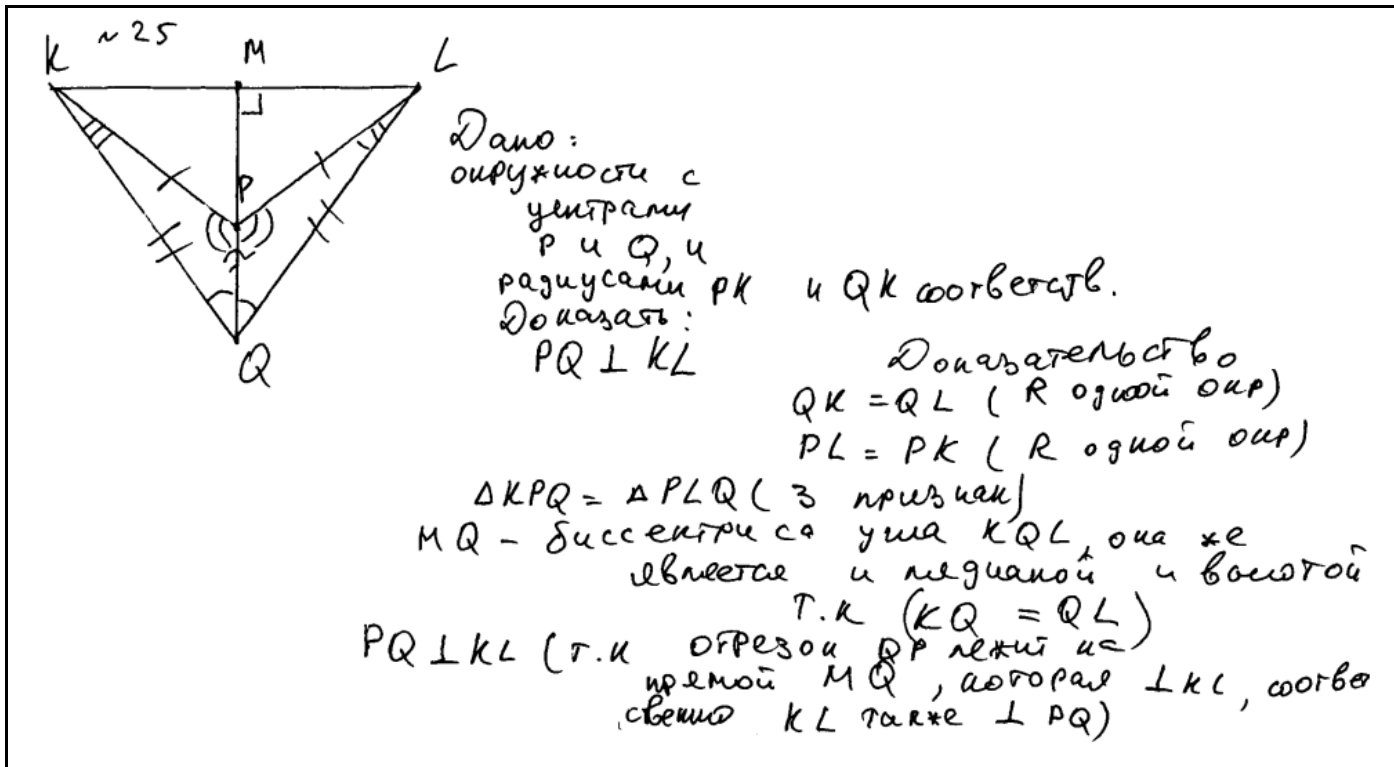 № 25
K M L
P
Q
Дано:
окружности с
центрами
P и Q, и
радиусами PK и QK соответств.
Доказать:
PQ ⊥ KL
Доказательство
QK = QL ( R одной окр)
PL = PK ( R одной окр)
ΔKPQ = ΔPLQ ( 3 признак)
MQ - биссектриса угла KQL, она же
является и медианой и высотой
т.к (KQ = QL)
PQ ⊥ KL (т.к отрезок QP лежит на
прямой MQ, которая ⊥ KL, соотве
ственно KL также ⊥ PQ)